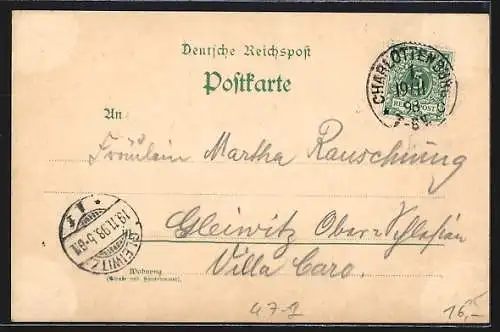 Deutsche Reichspost
Postkarte
CHARLOTTENBURG
5
REICHSPOST
98
7-8V.
An
Fräulein Martha Rauschning
Gleiwitz Ober-Schlesien
Villa Caro.
GLEIWITZ
19.11.98.5-6N.
Wohnung
(Straße und Hausnummer)
47-2
16,-